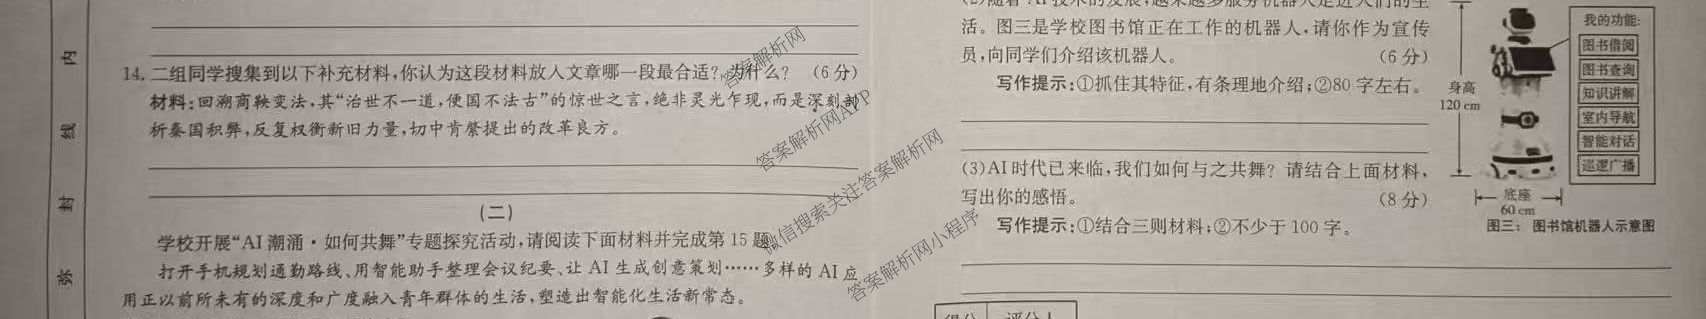 内
线
封
弥
14. 二组同学搜集到以下补充材料,你认为这段材料放入文章哪一段最合适?为什么? (6分)
材料:回溯商鞅变法,其“治世不一道,便国不法古”的惊世之言,绝非灵光乍现,而是深刻剖
析秦国积弊,反复权衡新旧力量,切中肯綮提出的改革良方。
(二)
学校开展“AI潮涌·如何共舞”专题探究活动,请阅读下面材料并完成第15题。
打开手机规划通勤路线、用智能助手整理会议纪要、让AI生成创意策划……多样的AI应
用正以前所未有的深度和广度融入青年群体的生活,塑造出智能化生活新常态。
(2)随着AI技术的发展,越来越多服务机器人走进人们的生
活。图三是学校图书馆正在工作的机器人,请你作为宣传
员,向同学们介绍该机器人。 (6分)
写作提示:①抓住其特征,有条理地介绍;②80字左右。
(3)AI时代已来临,我们如何与之共舞?请结合上面材料,
写出你的感悟。 (8分)
写作提示:①结合三则材料;②不少于100字。
我的功能:
图书借阅
图书查询
知识讲解
室内导航
智能对话
巡逻广播
身高
120 cm
底座
60 cm
图三: 图书馆机器人示意图
得分 评分人
答案解析网
答案解析网APP
微信搜索关注答案解析网
答案解析网小程序